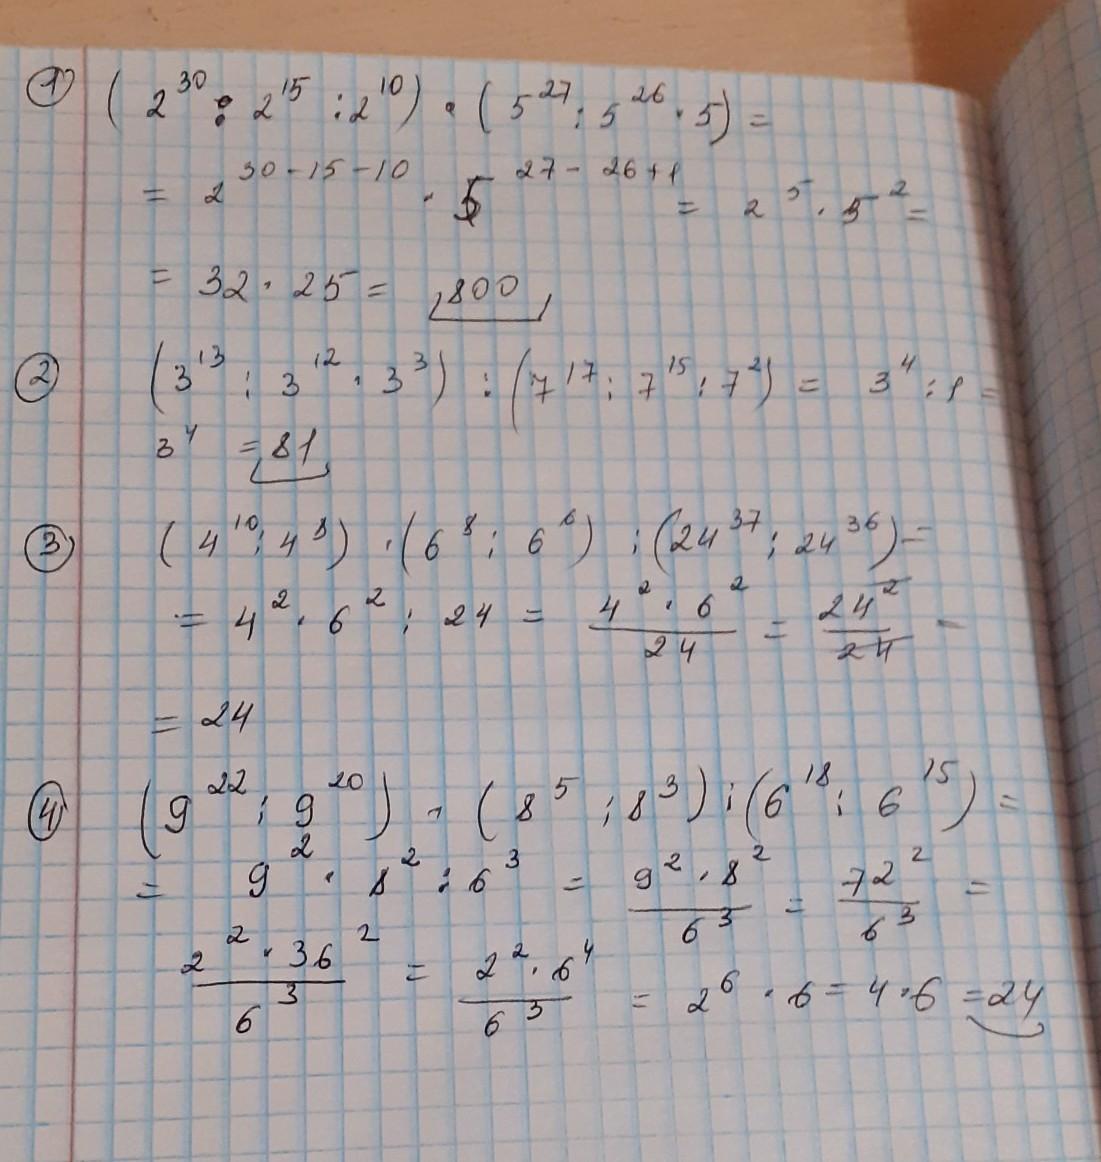 1) (2^30 : 2^15 : 2^10) · (5^27 : 5^26 · 5) =
= 2^(30-15-10) · 5^(27-26+1) = 2^5 · 5^2 =
= 32 · 25 = 800
2) (3^13 : 3^12 · 3^3) : (7^17 : 7^15 : 7^2) = 3^4 : 1 =
3^4 = 81
3) (4^10 : 4^8) · (6^8 : 6^6) : (24^37 : 24^36) =
= 4^2 · 6^2 : 24 = (4^2 · 6^2)/24 = 24^2/24 =
= 24
4) (9^22 : 9^20) · (8^5 : 8^3) : (6^18 : 6^15) =
= 9^2 · 8^2 : 6^3 = (9^2 · 8^2)/6^3 = 72^2/6^3 =
(2^2 · 36^2)/6^3 = (2^2 · 6^4)/6^3 = 2^6 · 6 = 4 · 6 = 24